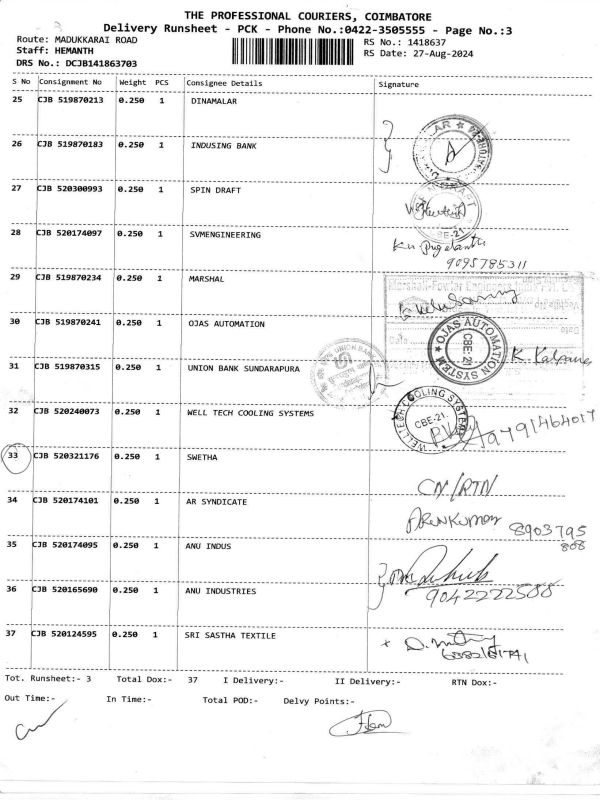 3
THE PROFESSIONAL COURIERS, COIMBATORE
Delivery Runsheet - PCK - Phone No.:0422-3505555 - Page No.:3
Route: MADUKKARAI ROAD
RS No.: 1418637
Staff: HEMANTH
RS Date: 27-Aug-2024
DRS No.: DCJB141863703
S No Consignment No Weight PCS Consignee Details Signature
25 CJB 519870213 0.250 1 DINAMALAR
26 CJB 519870183 0.250 1 INDUSING BANK
27 CJB 520300993 0.250 1 SPIN DRAFT
28 CJB 520174097 0.250 1 SVMENGINEERING
9095785311
29 CJB 519870234 0.250 1 MARSHAL
30 CJB 519870241 0.250 1 OJAS AUTOMATION
OJAS AUTOMATION SYSTEM
CBE-21
K. Kalpana
31 CJB 519870315 0.250 1 UNION BANK SUNDARAPURA
32 CJB 520240073 0.250 1 WELL TECH COOLING SYSTEMS
WELL TECH COOLING SYSTEMS
CBE-21.
33 CJB 520321176 0.250 1 SWETHA
CN/RTN
34 CJB 520174101 0.250 1 AR SYNDICATE
ARUNKUMAR 8903795
808
35 CJB 520174095 0.250 1 ANU INDUS
36 CJB 520165690 0.250 1 ANU INDUSTRIES
37 CJB 520124595 0.250 1 SRI SASTHA TEXTILE
Tot. Runsheet:- 3 Total Dox:- 37 I Delivery:- II Delivery:- RTN Dox:-
Out Time:- In Time:- Total POD:- Delvy Points:-